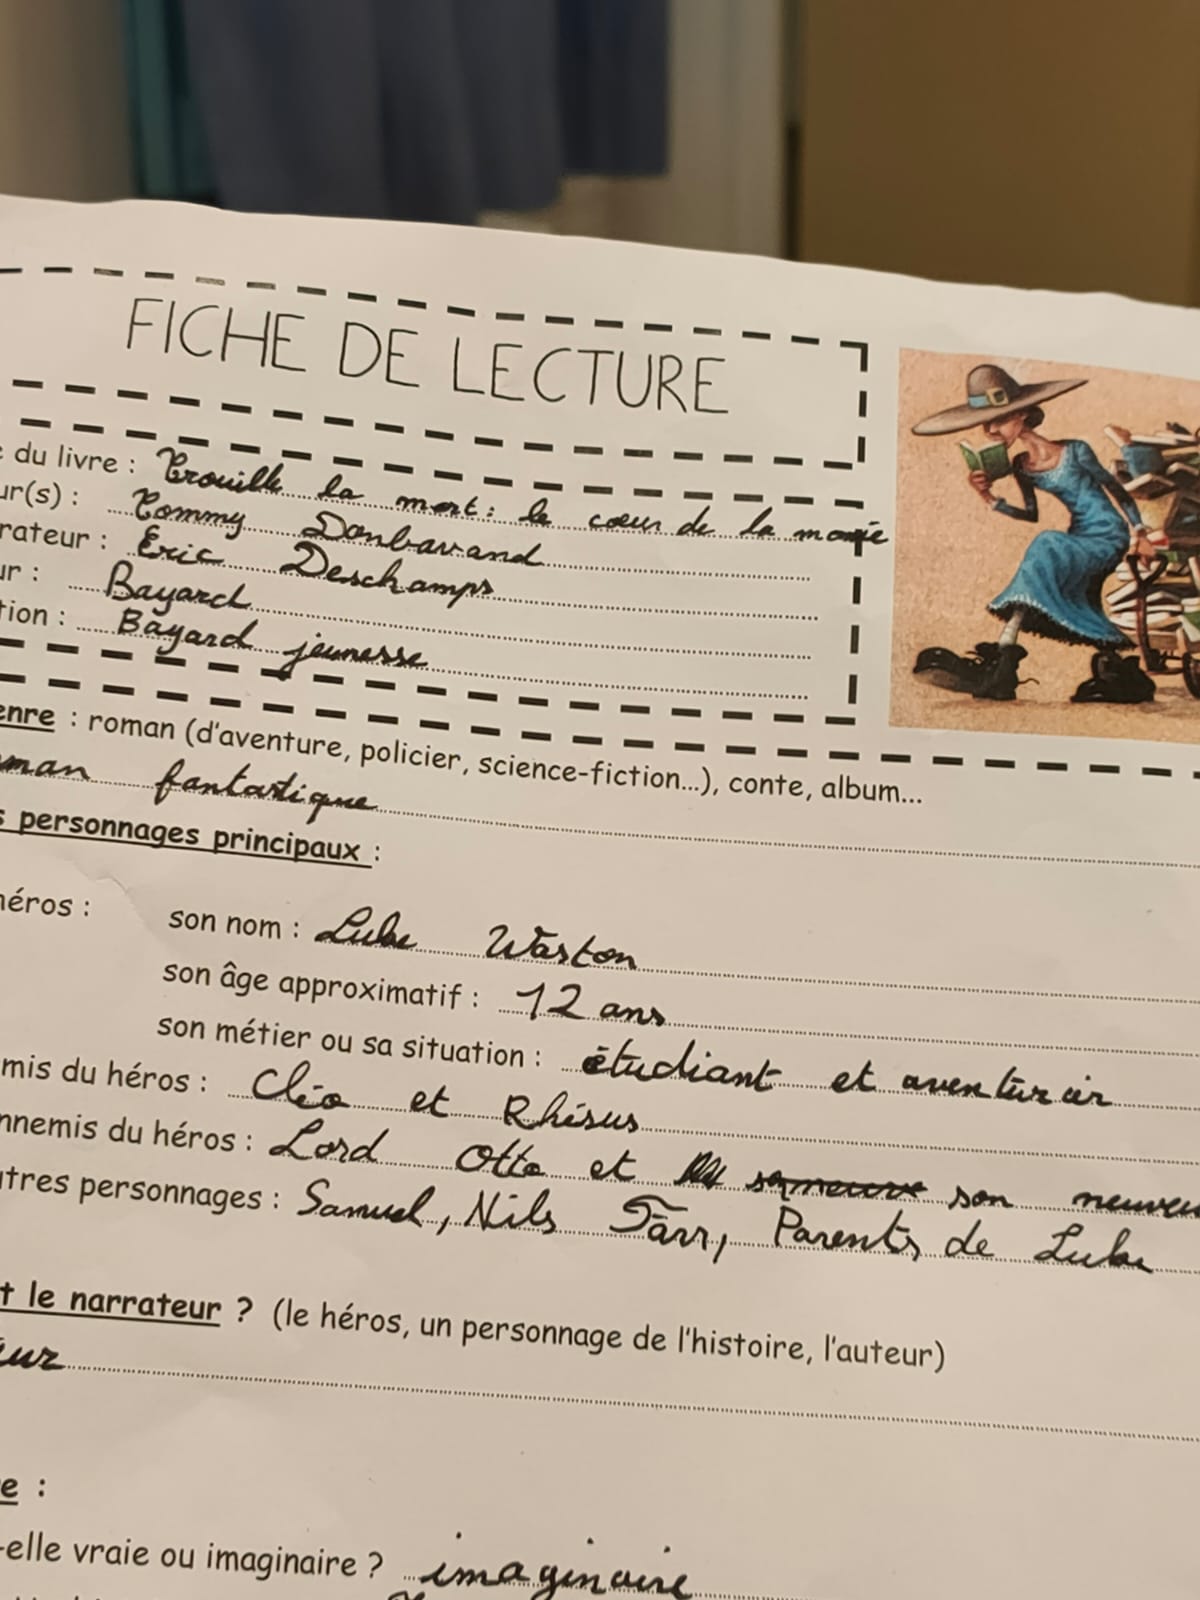 FICHE DE LECTURE
du livre : Trouille la mort : le cœur de la momie
ur(s) : Tommy Donbavand
rateur : Eric Deschamps
ur : Bayard
tion : Bayard jeunesse
enre : roman (d'aventure, policier, science-fiction...), conte, album...
man fantastique
s personnages principaux :
héros : son nom : Luke Waston
son âge approximatif : 12 ans
son métier ou sa situation : étudiant et aventurier
mis du héros : Cléo et Rhésus
nnemis du héros : Lord Otto et son neuveu
utres personnages : Samuel, Nils Farr, Parents de Luke
t le narrateur ? (le héros, un personnage de l'histoire, l'auteur)
eur
e :
-elle vraie ou imaginaire ? imaginaire